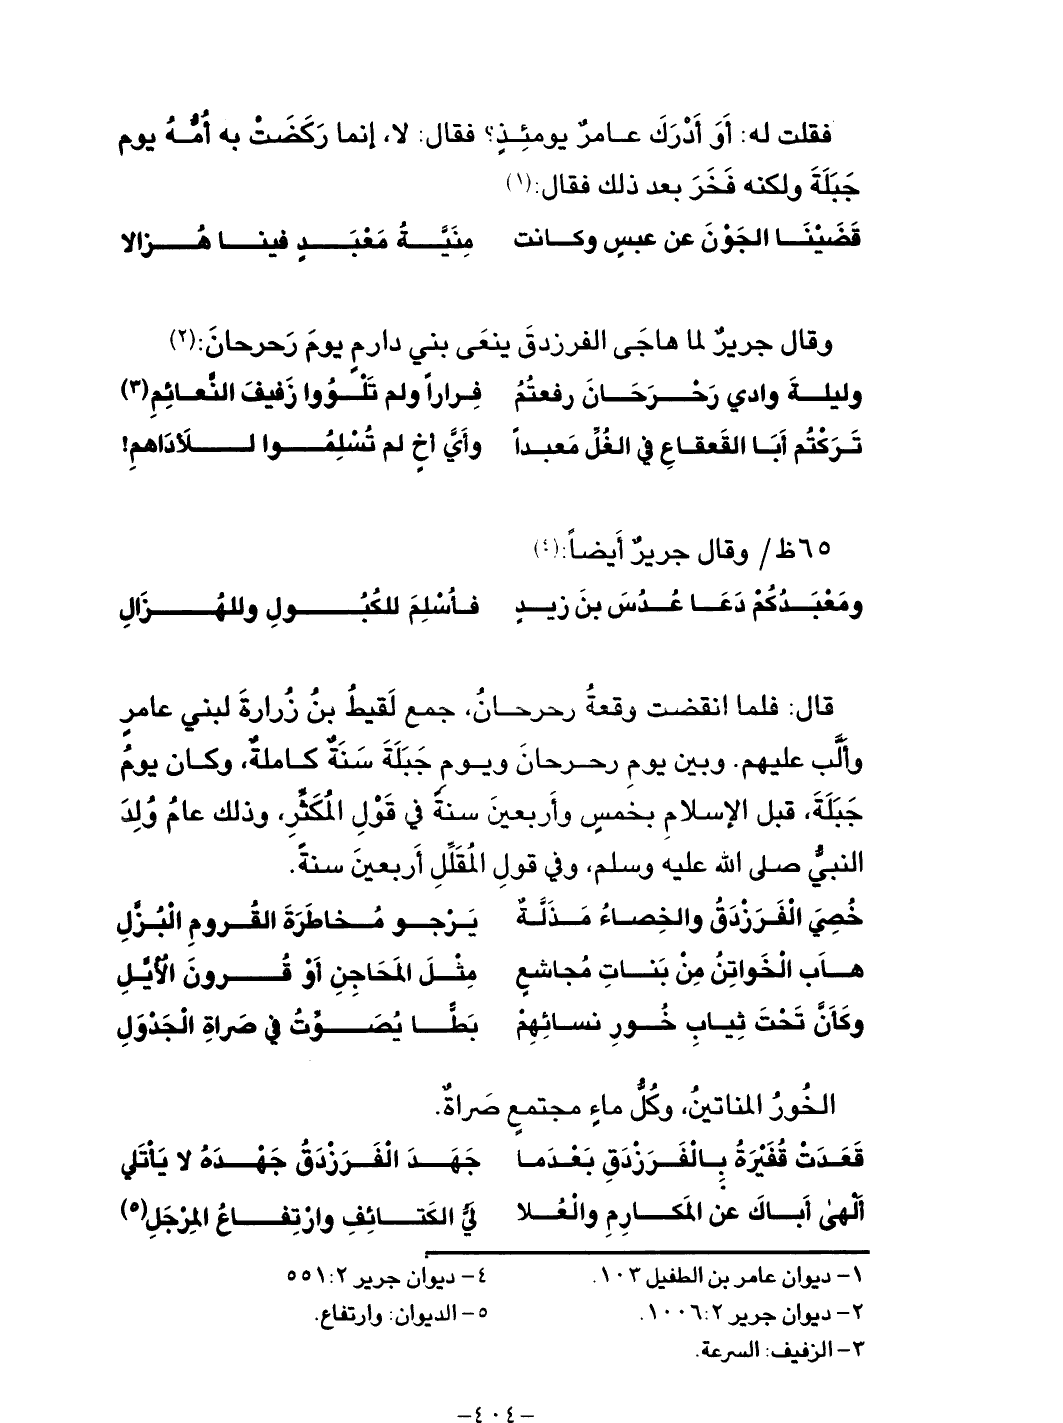 فقلت له: أَوَ أَدْرَكَ عـامرٌ يومئِـذٍ؟ فقال: لا، إنما رَكَضَتْ به أُمُّـهُ يوم
جَبَلَةَ ولكنه فَخَرَ بعد ذلك فقال:(١)
قَضَيْنَـا الجَوْنَ عن عبسٍ وكـانت مِنيَّـةُ مَعْبَـدٍ فينـا هُـزالا
وقال جريرٌ لما هاجَى الفرزدقَ ينعَى بني دارمٍ يومَ رَحرحانَ:(٢)
وليلـةَ وادي رَحْـرَحَـانَ رفعتُمُ فِـراراً ولم تَلْـوُوا زَفيفَ النَّعـائِمِ(٣)
تَـرَكْتُم أبَـا القَعقـاعِ في الغُلِّ مَعبـداً وأيَّ أخٍ لم تُسْلِمُـوا لـلأدَاهمِ!
٦٥ظ/ وقال جريرٌ أَيضـاً:(٤)
ومَعْبَـدُكُمْ دَعَـا عُـدُسَ بنَ زيـدٍ فـأُسْلِمَ للكُبُـولِ وللهُـزَالِ
قال: فلما انقضت وقعةُ رحرحـانُ، جمع لَقيطُ بنُ زُرارةَ لبني عامرٍ
وأَلَّب عليهم. وبين يومِ رحـرحانَ ويـومِ جَبَلَةَ سَنَةٌ كـاملةٌ، وكـان يومُ
جَبَلَةَ، قبل الإسلامِ بخمسٍ وأَربعينَ سنةً في قَوْلِ المُكَثِّرِ، وذلك عامُ وُلِدَ
النبيُّ صلى الله عليه وسلم، وفي قولِ المُقَلِّلِ أَربعينَ سنةً.
خُصِيَ الْفَـرَزْدَقُ والخِصاءُ مَـذَلَّـةٌ يَـرْجـو مُـخاطَرَةَ القُـرومِ الْبُزَّلِ
هـابَ الْخَواتِنُ مِنْ بَنـاتِ مُجاشعٍ مِثْـلَ المَحَاجِنِ أوْ قُـرونَ الْأُيَّـلِ
وكَأنَّ تَحْتَ ثِيـابِ خُـورِ نسـائِهِمْ بَطًّـا يُصَـوِّتُ في صَراةِ الْجَدْوَلِ
الخُورُ المناتينُ، وكُلُّ ماءٍ مجتمعٍ صَراةٌ.
قَعَـدَتْ قُفَيْرَةُ بِـالْفَـرَزْدَقِ بَعْـدَمـا جَهَـدَ الْفَـرَزْدَقُ جَهْـدَهُ لا يَأْتَلي
أَلْهىٰ أبـاكَ عن المَكـارِمِ والْعُـلا لَيُّ الكَتـائِفِ وارْتِفـاعُ المِرْجَلِ(٥)
١- ديوان عامر بن الطفيل ١٠٣.
٢- ديوان جرير ١٠٠٦:٢.
٣- الزفيف: السرعة.
٤- ديوان جرير ٥٥١:٢
٥- الديوان: وارتفاع.
-٤٠٤-